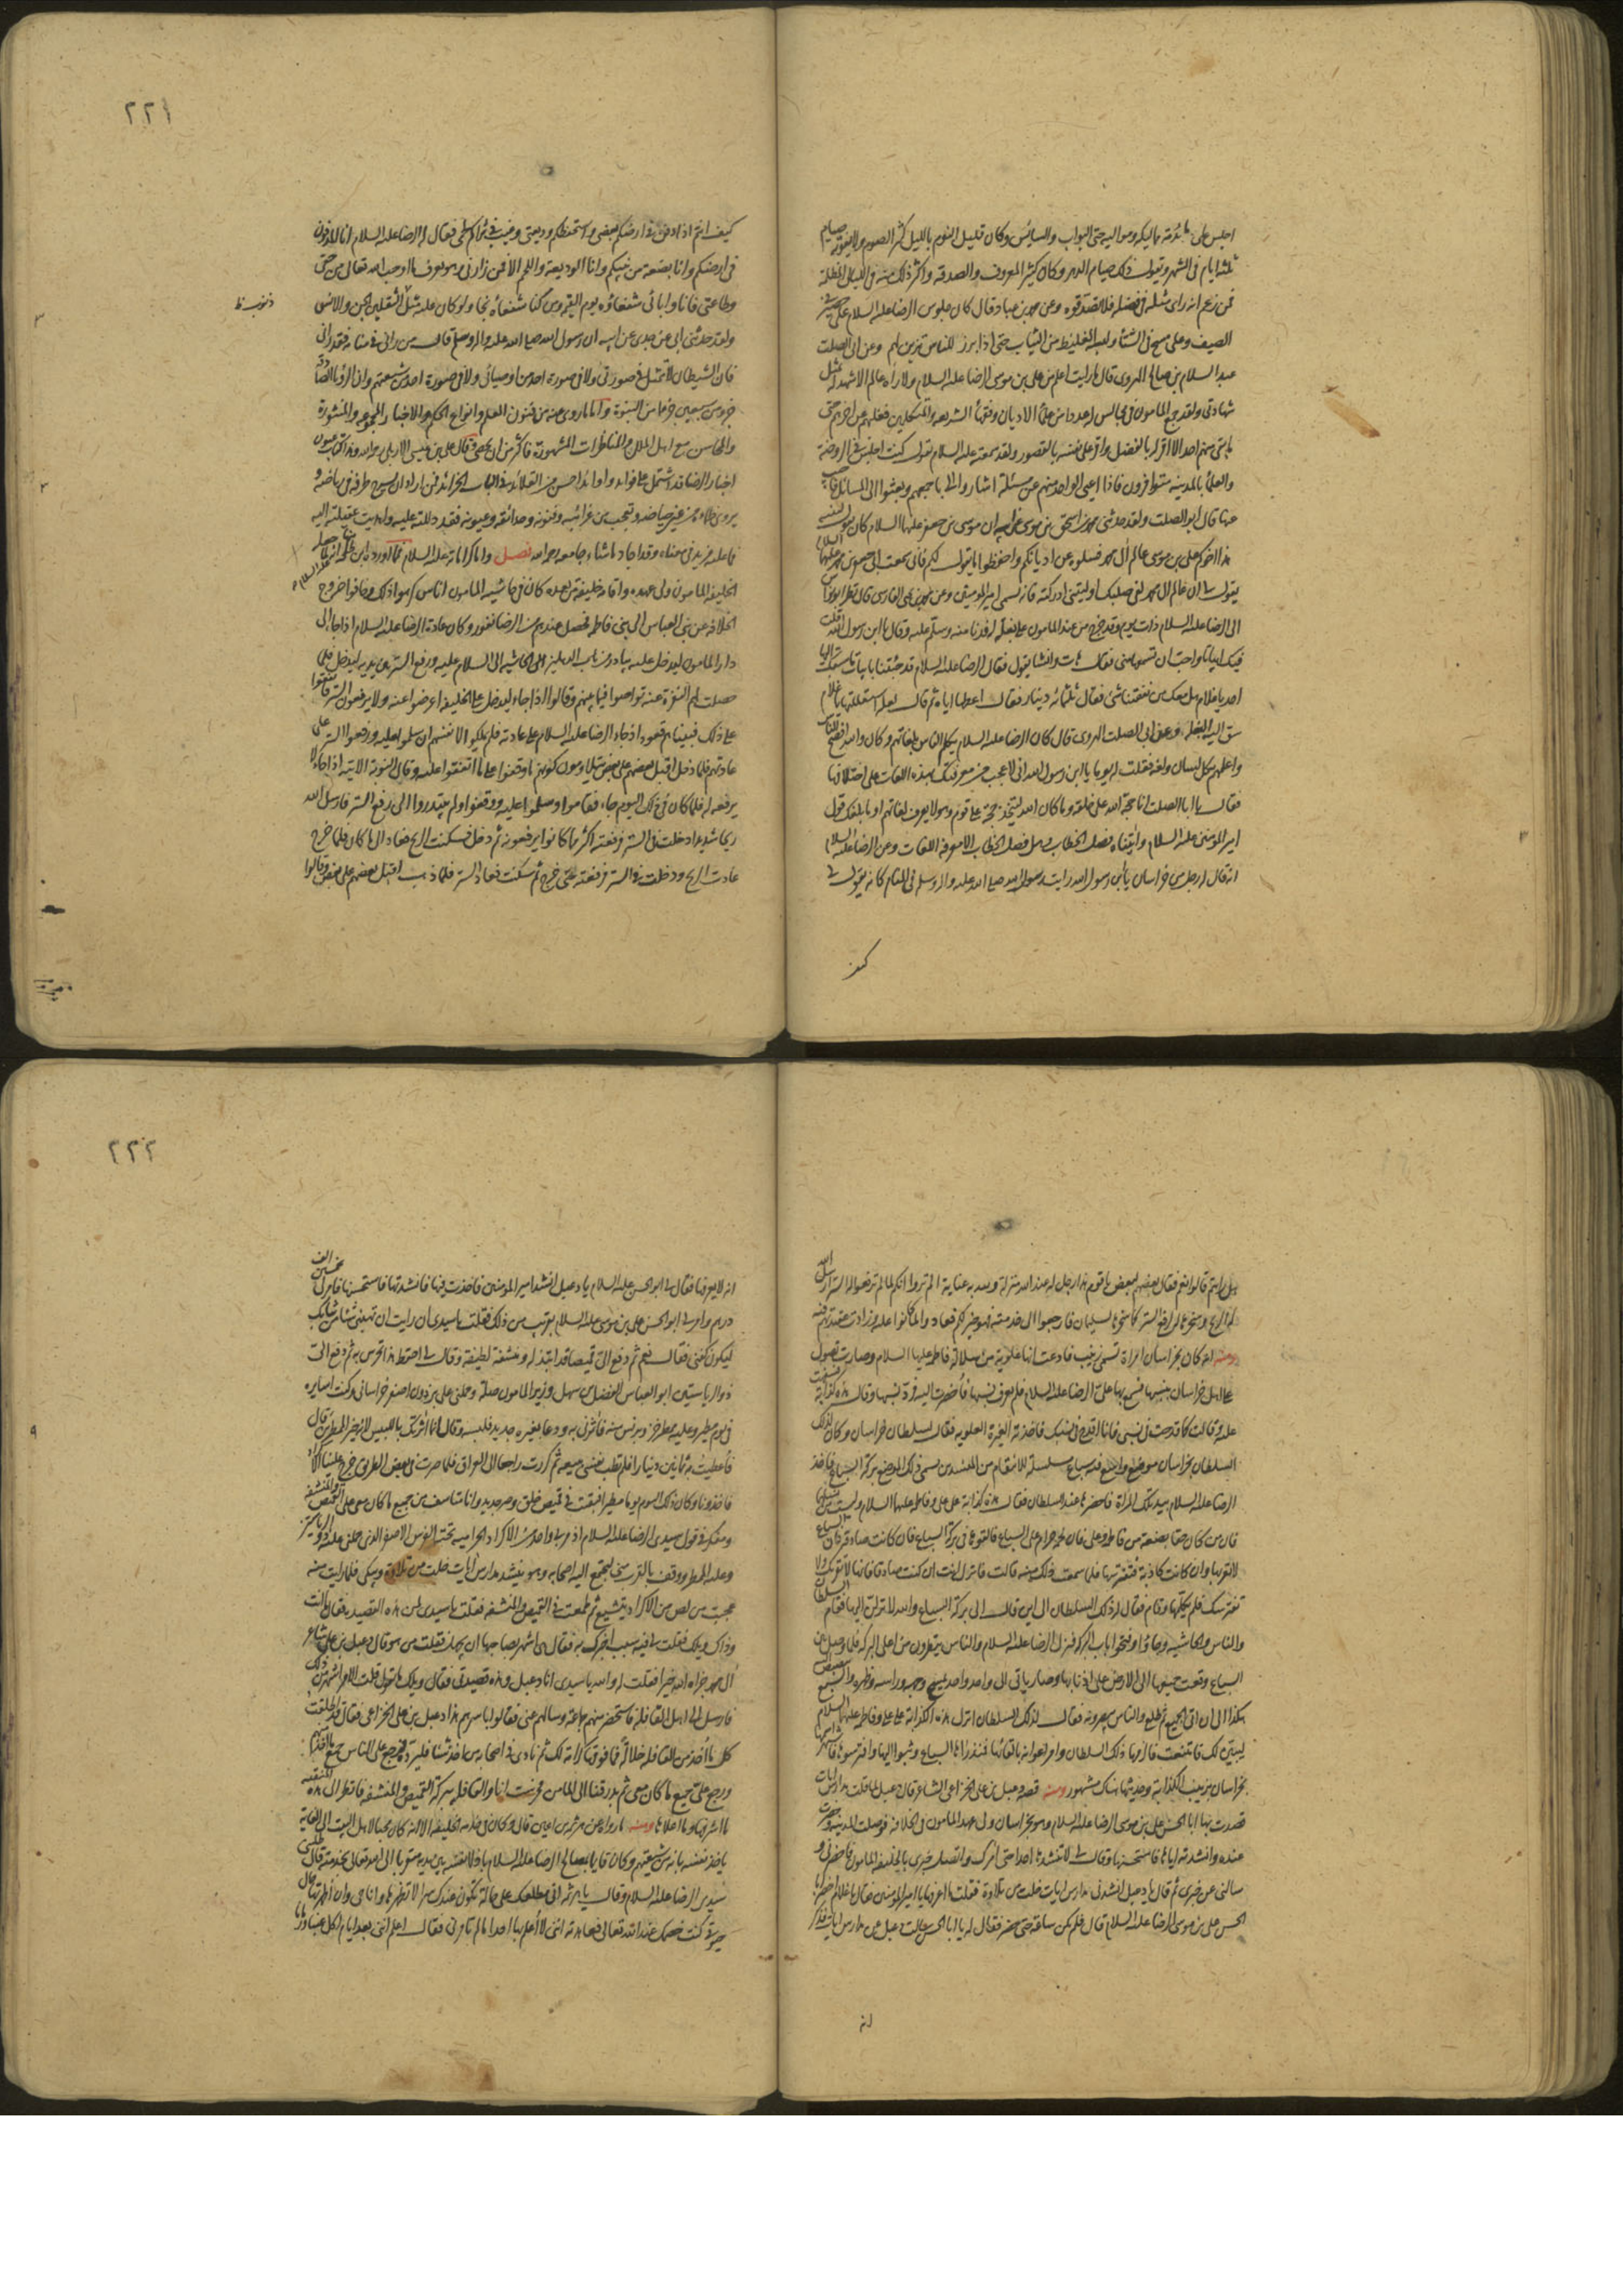 اجلس على مائدته مماليكه ومواليه حتى البواب والسائس وكان قليل النوم بالليل كثير الصوم ولا يفوته صيام
ثلثة ايام في الشهر ويقول ذلك صيام الدهر وكان كثير المعروف والصدقة واكثر ذلك منه في الليالى المظلمة
فمن زعم انه راى مثله في فضله فلا تصدقوه وعن محمد بن عباد قال كان جلوس الرضا عليه السلام على حصير في
الصيف وعلى مسح في الشتاء ولبسه الغليظ من الثياب حتى اذا برز للناس تزين لهم وعن ابى الصلت
عبد السلام بن صالح الهروى قال ما رايت اعلم من على بن موسى الرضا عليه السلام ولا راه عالم الا شهد له بمثل
شهادتى ولقد جمع المامون في مجالس له عددا من علماء الاديان وفقهاء الشريعة والمتكلمين فغلبهم عن اخرهم حتى
ما بقى منهم احد الا اقر له بالفضل واقر على نفسه بالقصور ولقد سمعته عليه السلام يقول كنت اجلس في الروضة
والعلماء بالمدينة متوافرون فاذا اعيى الواحد منهم عن مسئلة اشاروا الى باجمعهم وبعثوا الى المسائل فاجيب
عنها قال ابو الصلت ولقد حدثنى محمد بن اسحق بن موسى عن ابيه ان موسى بن جعفر عليهما السلام كان يقول لبنيه
هذا اخوكم على بن موسى عالم ال محمد فسلوه عن اديانكم واحفظوا ما يقول لكم فانى سمعت ابى جعفر بن محمد عليهما السلام
يقول لى ان عالم ال محمد لفى صلبك وليتنى ادركته فانه سمى امير المومنين وعن محمد بن يحيى الفارسى قال نظر ابو نواس
الى الرضا عليه السلام ذات يوم وقد خرج من عند المامون على بغلة له فدنا منه وسلم عليه وقال يا ابن رسول الله قلت
فيك ابياتا واحب ان تسمعها منى فقال هات وانشا يقول فقال الرضا عليه السلام قد جئتنا بابيات ما سبقك اليها
احد يا غلام هل معك من نفقتنا شئ فقال ثلثمائة دينار فقال اعطها اياه ثم قال لعله استقلها يا غلام
سق اليه البغلة وعن ابى الصلت الهروى قال كان الرضا عليه السلام يكلم الناس بلغاتهم وكان والله افصح الناس
واعلمهم بكل لسان ولغة فقلت له يوما يا ابن رسول الله انى لاعجب من معرفتك بهذه اللغات على اختلافها
فقال يا ابا الصلت انا حجة الله على خلقه وما كان الله ليتخذ حجة على قوم وهو لا يعرف لغاتهم او ما بلغك قول
امير المومنين عليه السلام واتيناه فصل الخطاب وهل فصل الخطاب الا معرفة اللغات وعن الرضا عليه السلام
انه قال له رجل من خراسان يا بن رسول الله رايت رسول الله صلى الله عليه واله وسلم في المنام كانه يقول لى
كيف
٢٢١
كيف انتم اذا دفن في ارضكم بعضى واستحفظتم وديعتى وغيب في ثراكم نجمى فقال له الرضا عليه السلام انا المدفون
في ارضكم وانا بضعة من نبيكم وانا الوديعة والنجم الا فمن زارنى وهو يعرف ما اوجب الله تعالى من حقى
وطاعتى فانا وابائى شفعاؤه يوم القيمة ومن كنا شفعاؤه نجا ولو كان عليه مثل الثقلين الجن والانس
ذنوب ظ
ولقد حدثنى ابى عن جدى عن ابيه ان رسول الله صلى الله عليه واله وسلم قال من رانى في منامه فقد رانى
فان الشيطان لا يتمثل في صورتى ولا في صورة احد من اوصيائى ولا في صورة احد من شيعتهم وان الرؤيا الصادقة
جزو من سبعين جزءا من النبوة واما ما روى عنه من فنون العلم وانواع الحكم والاخبار المجموعة والمنثورة
والمجالس مع اهل الملل والمناظرات المشهورة فاكثر من ان يحصى قال على بن عيسى الاربلى رحمه الله وهذا الكتاب عيون
اخبار الرضا قد اشتمل على فوائد واوابد احسن من القلائد في لبات الخرائد فمن اراد ان يسرح طرفه في رياضه و
يروى ظماه من غير حياضه ويتعجب من غرائبه وفنونه وحدائقه وعيونه فقد دللته عليه واهديت عقيلته اليه
فما عليه مزيد في معناه وقد اجاد ما شاء جامعه رحمه الله فصل واما كراماته عليه السلام فمما اورده ابن طلحة انه لما جعله
الخليفة المامون ولى عهده واقامه خليفة من بعده كان في حاشية المامون اناس كرهوا ذلك وخافوا خروج
الخلافة عن بنى العباس الى بنى فاطمة فحصل عندهم من الرضا نفور وكان عادة الرضا عليه السلام اذا جاء الى
دار المامون ليدخل عليه يبادر من بباب الدهليز من الحاشية الى السلام عليه ورفع الستر بين يديه ليدخل فلما
حصلت لهم النفرة عنه تواصوا فيما بينهم وقالوا اذا جاء ليدخل على الخليفة اعرضوا عنه ولا ترفعوا الستر له فاتفقوا
على ذلك فبيناهم قعود اذ جاء الرضا عليه السلام على عادته فلم يملكوا انفسهم ان سلموا عليه ورفعوا الستر على
عادتهم فلما دخل اقبل بعضهم على بعض يتلاومون كونهم ما وقفوا على ما اتفقوا عليه وقالوا النوبة الاتية اذا جاء لا
نرفعه له فلما كان في ذلك اليوم جاء فقاموا وسلموا عليه ووقفوا ولم يبتدروا الى رفع الستر فارسل الله
ريحا شديدة دخلت في الستر فرفعته اكثر مما كانوا يرفعونه ثم دخل فسكنت الريح فعاد الى ما كان فلما خرج
عادت الريح ودخلت في الستر فرفعته حتى خرج ثم سكنت فعاد الستر فلما ذهب اقبل بعضهم على بعض وقالوا
هل رايتم قالوا نعم فقال بعضهم لبعض يا قوم هذا رجل له عند الله منزلة ولله به عناية الم تروا انكم لما لم ترفعوا له الستر ارسل الله
له الريح وسخرها له لرفع الستر كما سخرها لسليمان فارجعوا الى خدمته فهو خير لكم فعادوا الى ما كانوا عليه وزادت عقيدتهم فيه
ومنه انه كان بخراسان امراة تسمى زينب فادعت انها علوية من سلالة فاطمة عليها السلام وصارت تصول
على اهل خراسان بنسبها فسمع بها على الرضا عليه السلام فلم يعرف نسبها فاحضرت اليه فرد نسبها وقال هذه كذابة فسفهت
عليه وقالت كما قدحت في نسبى فانا اقدح في نسبك فاخذته الغيرة العلوية فقال لسلطان خراسان وكان لذلك
السلطان بخراسان موضع واسع فيه سباع مسلسلة للانتقام من المفسدين يسمى ذلك الموضع بركة السباع فاخذ
الرضا عليه السلام بيد تلك المراة فاحضرها عند السلطان فقال هذه كذابة على على وفاطمة عليهما السلام وليست من نسلهما
فان من كان حقا بضعة من فاطمة وعلى فان لحمه حرام على السباع فالقوها في بركة السباع فان كانت صادقة فان السباع
لا تقربها وان كانت كاذبة فتفترسها فلما سمعت ذلك منه قالت فانزل انت ان كنت صادقا فانها لا تقربك ولا
تفترسك فلم يكلمها وقام فقال له ذلك السلطان الى اين قال الى بركة السباع والله لانزلن اليها فقام السلطان
والناس والحاشية وجاؤا وفتحوا باب البركة فنزل الرضا عليه السلام والناس ينظرون من اعلى البركة فلما حصل بين
السباع وقعت جميعها الى الارض على اذنابها وصار ياتى الى واحد واحد يمسح وجهه وراسه وظهره والسبع يبصبص
هكذا الى ان اتى الجميع ثم طلع والناس يبصرونه فقال لذلك السلطان انزل هذه الكذابة على على وفاطمة عليهما السلام
ليتبين لك فامتنعت فالزمها ذلك السلطان وامر اعوانه بالقائها فمذ راها السباع وثبوا اليها وافترسوها فاشتهر اسمها
بخراسان بزينب الكذابة وحديثها هناك مشهور ومنه قصة دعبل بن على الخزاعى الشاعر قال دعبل لما قلت مدارس ايات
قصدت بها ابا الحسن على بن موسى الرضا عليه السلام وهو بخراسان ولى عهد المامون في الخلافة فوصلت المدينة وحضرت
عنده وانشدته اياها فاستحسنها وقال لى لا تنشدها احدا حتى امرك واتصل خبرى بالخليفة المامون فاحضرنى و
سالنى عن خبرى ثم قال يا دعبل انشدنى مدارس ايات خلت من تلاوة فقلت ما اعرفها يا امير المومنين فقال يا غلام احضر ابا
الحسن على بن موسى الرضا عليه السلام قال فلم يكن ساعة حتى حضر فقال له يا ابا الحسن سالت دعبل عن مدارس ايات فذكر
انه
٢٢٢
انه لا يعرفها فقال لى ابو الحسن عليه السلام يا دعبل انشد امير المومنين فاخذت فيها فانشدتها فاستحسنها فامر لى بخمسين الف
درهم وامر لى ابو الحسن على بن موسى عليه السلام بقريب من ذلك فقلت يا سيدى ان رايت ان تهبنى شيئا من ثيابك
ليكون كفنى فقال نعم ثم دفع الى قميصا قد ابتذله ومنشفة لطيفة وقال لى احفظ هذا تحرس به ثم دفع الى
ذو الرياستين ابو العباس الفضل بن سهل وزير المامون صلة وحملنى على برذون اصفر خراسانى وكنت اسايره
في يوم مطير وعليه ممطر خز وبرنس منه فامر لى به ودعا بغيره جديد فلبسه وقال انما اثرتك باللبيس لانه خير الممطرين قال
فاعطيت به ثمانين دينارا فلم تطب نفسى ببيعه ثم كررت راجعا الى العراق فلما صرت في بعض الطريق خرج علينا الاكراد
فاخذونا وكان ذلك اليوم يوما مطيرا فبقيت في قميص خلق وضر جديد وانا متاسف من جميع ما كان معى على القميص والمنشفة
ومفكر في قول سيدى الرضا عليه السلام اذ مر بى واحد من الاكراد الحرامية تحته الفرس الاصفر الذى حملنى عليه ذو الرياستين
وعليه الممطر ووقف بالقرب منى ليجتمع اليه اصحابه وهو ينشد مدارس ايات خلت من تلاوة ويبكى فلما رايت منه
عجبت من لص من الاكراد يتشيع ثم طمعت في القميص والمنشفة فقلت يا سيدى لمن هذه القصيدة فقال ما انت
وذاك ويلك فقلت لى فيه سبب اخبرك به فقال هى اشهر بصاحبها ان يجهل فقلت من هو قال دعبل بن على شاعر
ال محمد جزاه الله خيرا فقلت له والله يا سيدى انا دعبل وهذه قصيدتى فقال ويلك ما تقول قلت الامر اشهر من ذلك
فارسل الى اهل القافلة فاستحضر منهم جماعة وسالهم عنى فقالوا باسرهم هذا دعبل بن على الخزاعى فقال قد اطلقت
كل ما اخذ من القافلة خلالة فما فوقها كرامة لك ثم نادى في اصحابه من اخذ شيئا فليرده فرجع على الناس جميع ما اخذ منهم
ورجع على جميع ما كان معى ثم بدرقنا الى المامن فحرست انا والقافلة ببركة القميص والمنشفة فانظر الى هذه المنقبة
ما اشرفها وما اعلاها ومنه ما رواه عن هرثمة بن اعين قال وكان في خدمة الخليفة الا انه كان محبا لاهل البيت الى الغاية
ياخذ نفسه بانه من شيعتهم وكان قائما بمصالح الرضا عليه السلام باذلا نفسه بين يديه متقربا الى الله تعالى بخدمته قال طلبنى
سيدى الرضا عليه السلام وقال يا هرثمة انى مطلعك على حالة تكون عندك سرا لا تظهرها وانا حى وان اظهرتها حال
حيوتى كنت خصمك عند الله تعالى فعاهدته اننى لا اعلم بها احدا ما لم تامرنى فقال اعلم اننى بعد ايام اكل عنبا ورمانا